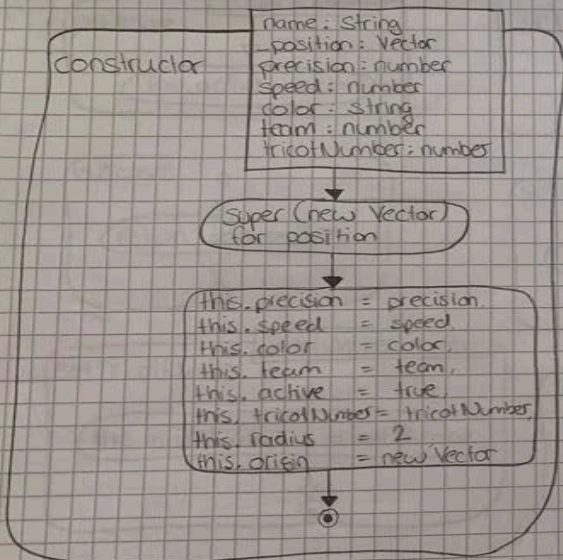 constructor
name: String
_position: Vector
precision: number
speed: number
color: String
team: number
tricotNumber: number
super (new Vector)
for position
this.precision = precision,
this.speed = speed,
this.color = color,
this.team = team,
this.active = true,
this.tricotNumber = tricotNumber,
this.radius = 2
this.origin = new Vector